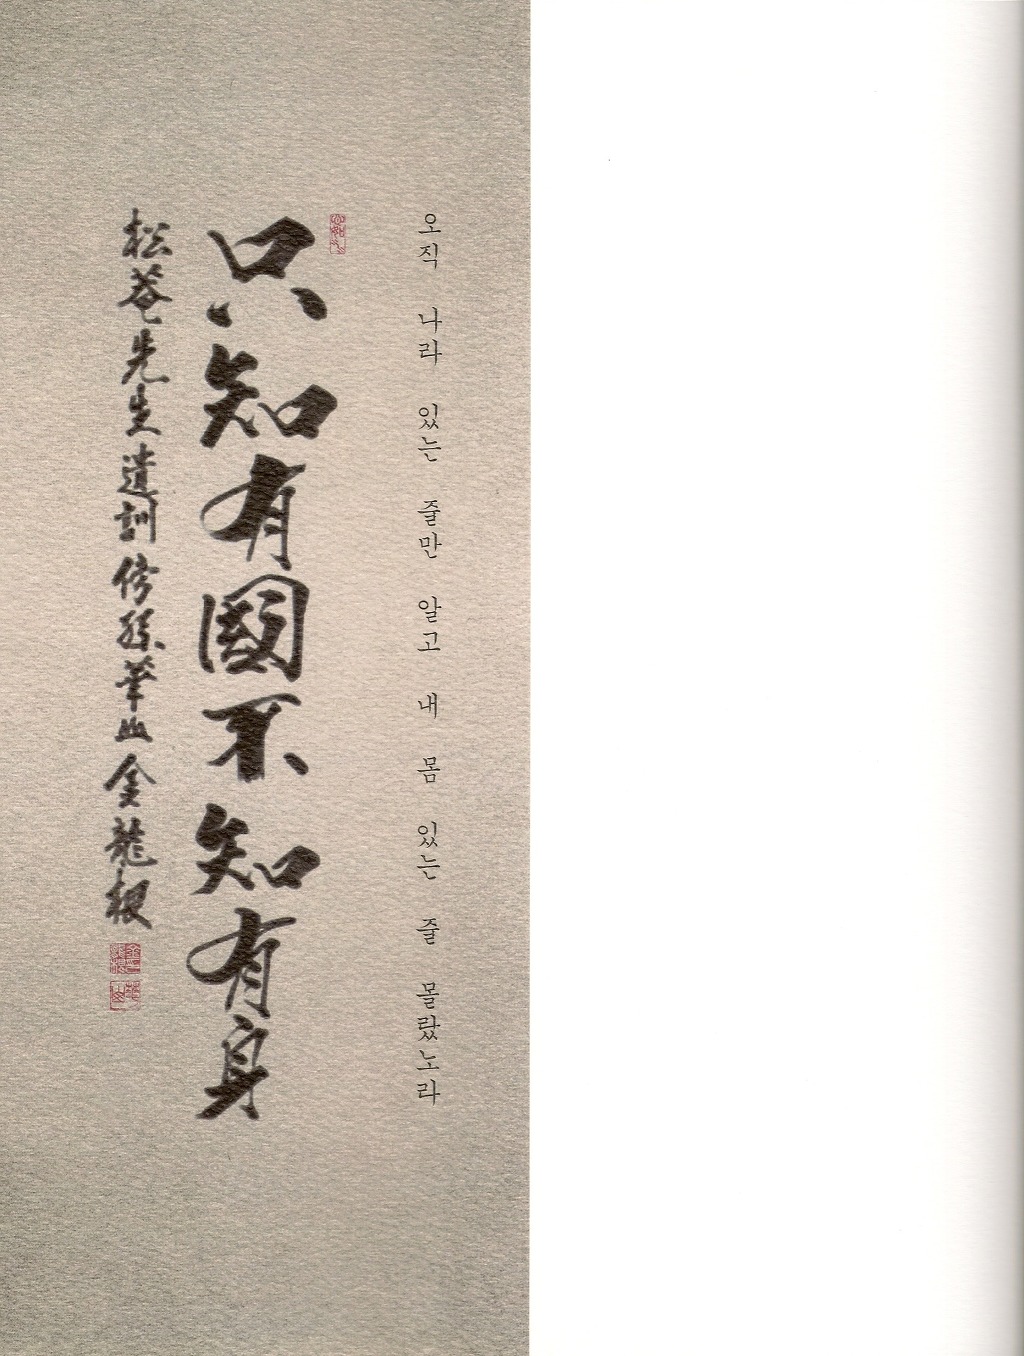 오직 나라 있는 줄만 알고 내 몸 있는 줄 몰랐노라
只知有國不知有身
松菴先生遺訓傍孫華山金龍根